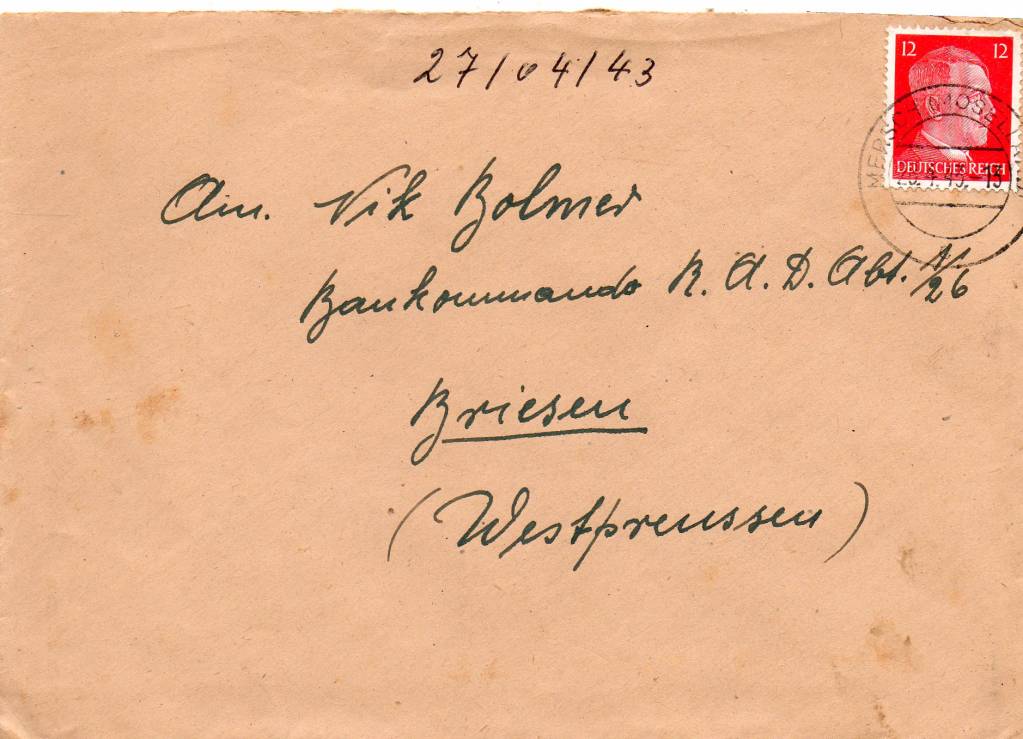 27/04/43
12 12
DEUTSCHES REICH
MERSCH (MOSELL
Am. Nik Bolmer
Baukommando R. A. D. Abt.
26
Briesen
(Westpreussen)